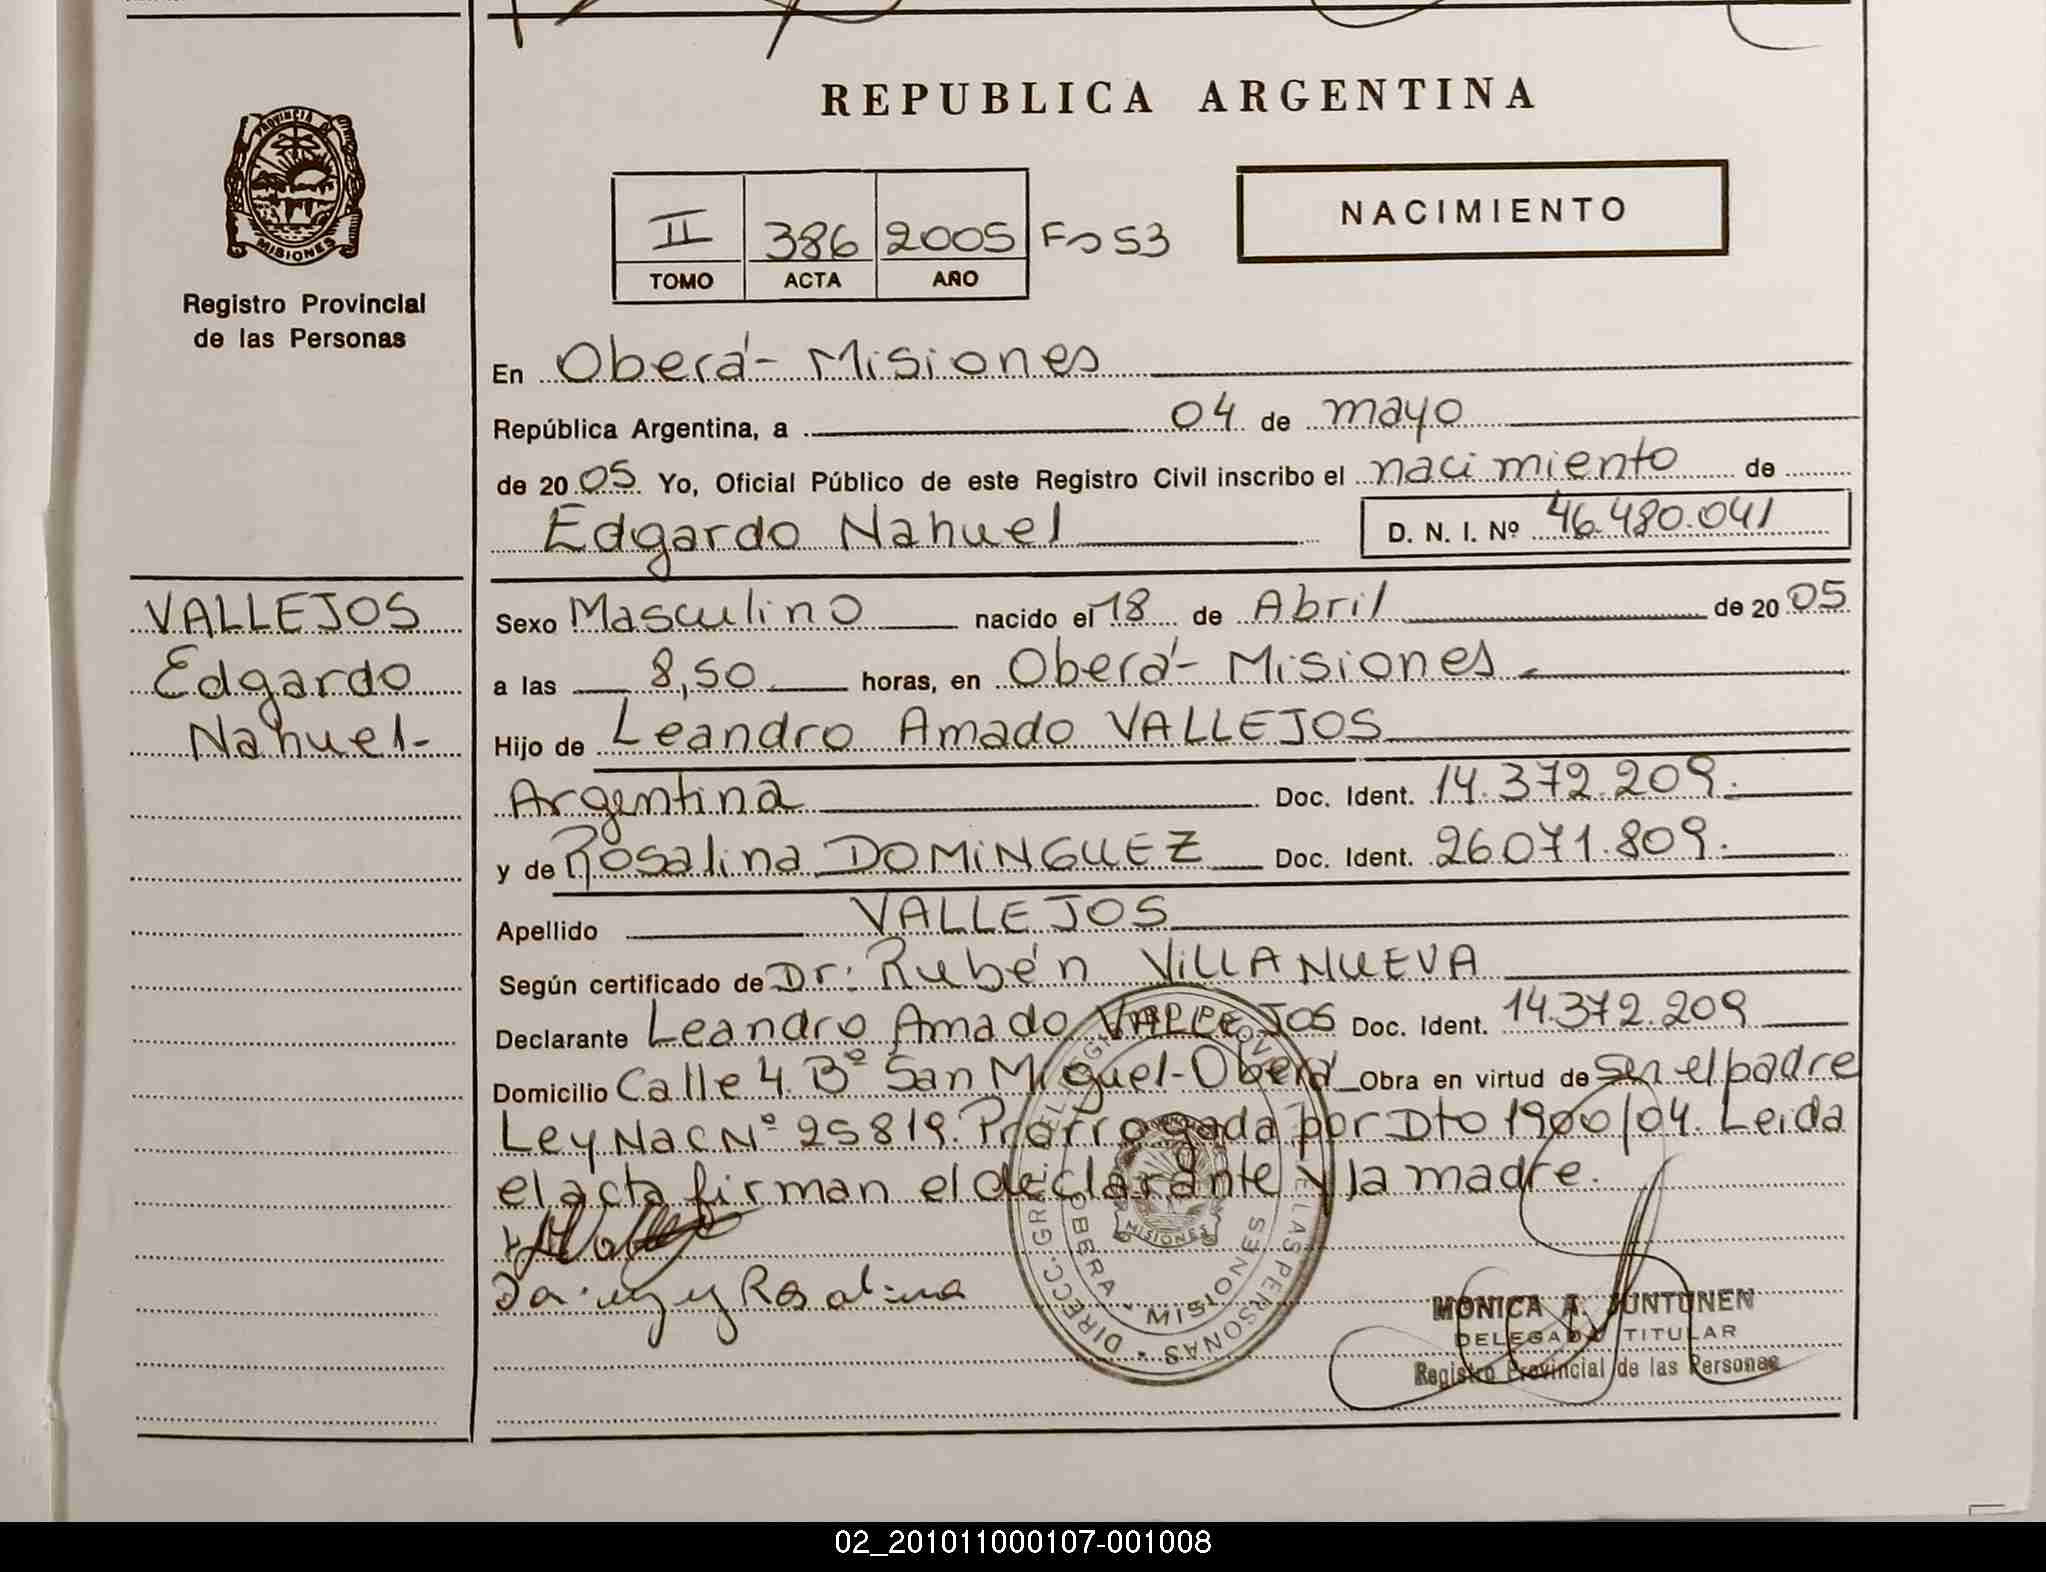 REPUBLICA ARGENTINA
PROVINCIA DE
MISIONES
Registro Provincial
de las Personas
II 386 2005 Fo 53
TOMO ACTA AÑO
NACIMIENTO
En Oberá - Misiones
República Argentina, a 04 de mayo
de 2005 Yo, Oficial Público de este Registro Civil inscribo el nacimiento de
Edgardo Nahuel D. N. I. Nº 46.480.041
VALLEJOS
Edgardo
Nahuel-
Sexo Masculino nacido el 18 de Abril de 2005
a las 8,50 horas, en Oberá - Misiones
Hijo de Leandro Amado VALLEJOS
Argentina Doc. Ident. 14.372.209.
y de Rosalina DOMINGUEZ Doc. Ident. 26071.809.
Apellido VALLEJOS
Según certificado de Dr: Rubén VILLANUEVA
Declarante Leandro Amado VALLEJOS Doc. Ident. 14.372.209
Domicilio Calle 4. Bº San Miguel - Oberá Obra en virtud de ser el padre
Ley Nac Nº 25819. Prorrogada por Dto 1900/04. Leida
el acta firman el declarante y la madre.
Rosalina
OBERA - MISIONES
MISIONES
MONICA A. JUNTUNEN
DELEGADA TITULAR
Registro Provincial de las Personas
02_201011000107-001008